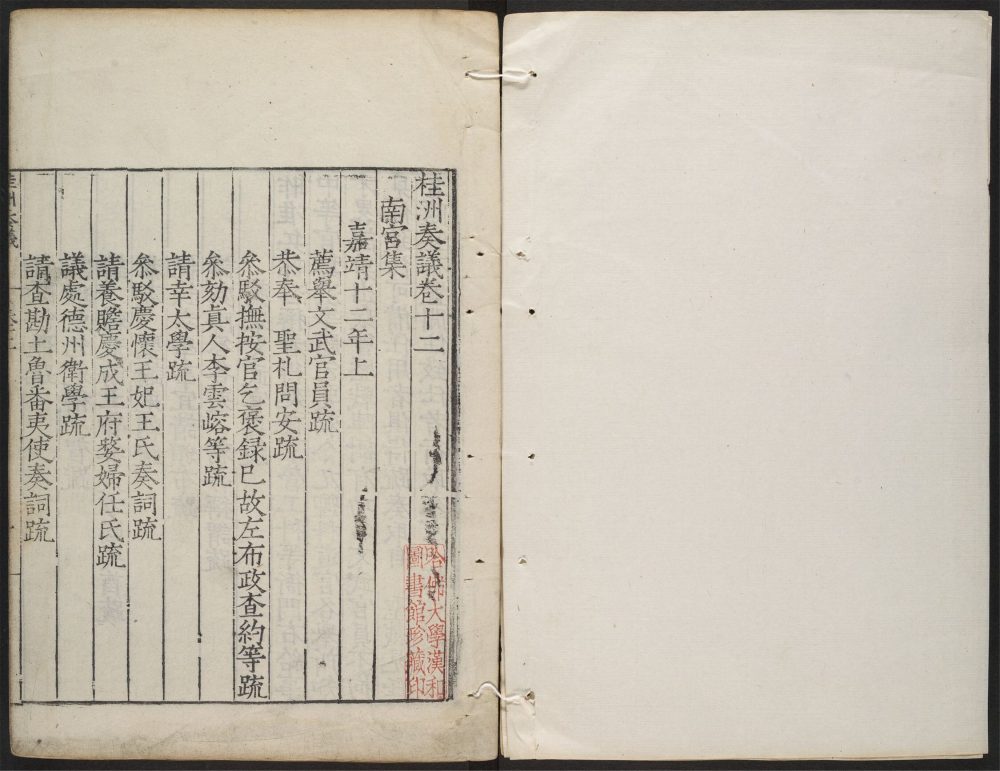 桂洲奏議卷十二
南宮集
嘉靖十二年上
薦舉文武官員疏
恭奉　聖札問安疏
叅駁撫按官乞褒録已故左布政查約等疏
叅劾真人李雲嵱等疏
請幸太學疏
叅駁慶懷王妃王氏奏詞疏
請養贍慶成王府嫠婦任氏疏
議處德州衛學疏
請查勘土魯番夷使奏詞疏
哈佛大學漢和
圖書館珍藏印